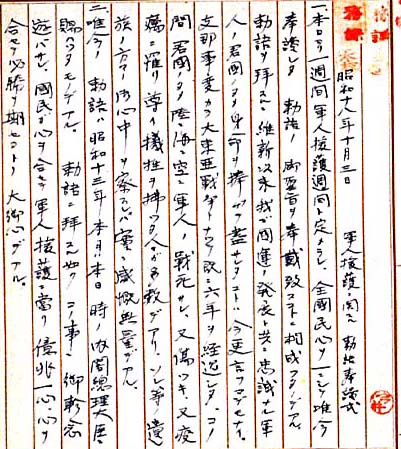 昭和十八年十月三日
軍人援護ニ関スル勅語奉読式
一、本日ヨリ一週間軍人援護週間ト定メラレ、全国民心ヲ一ニシ唯今
奉読シタ 勅語ノ御聖旨ヲ奉戴致スコトニ相成ツタノデアル。
勅語ヲ拝スルニ維新以来我ガ国運ノ発展ト共ニ忠誠ナル軍
人ノ君国ノタメ身命ヲ捧ゲテ盡サレタコトハ今更言フマデモナイ。
支那事変カラ大東亜戦争ニナツテ既ニ六年ヲ経過シタ。コノ
間君国ノタメ陸ニ海ニ空ニ軍人ノ戦死サレ、又傷ツキ、又疫
癘ニ罹リ尊イ犠牲ヲ拂ツタ人ガ多数デアリ、ソレ等ノ遺
族ノ方々ノ御心中ヲ察スレバ実ニ感慨無量デアル。
二、唯今ノ勅語ハ昭和十三年ノ本月ノ本日時ノ内閣総理大臣ニ
賜ハツタモノデアル。 勅語ニ拝スル如クコノ事ニ御軫念
遊バサレ、国民ガ心ヲ合セテ軍人援護ニ當リ億兆一心、心ヲ
合セテ必勝ヲ期セヨトノ大御心デアル。